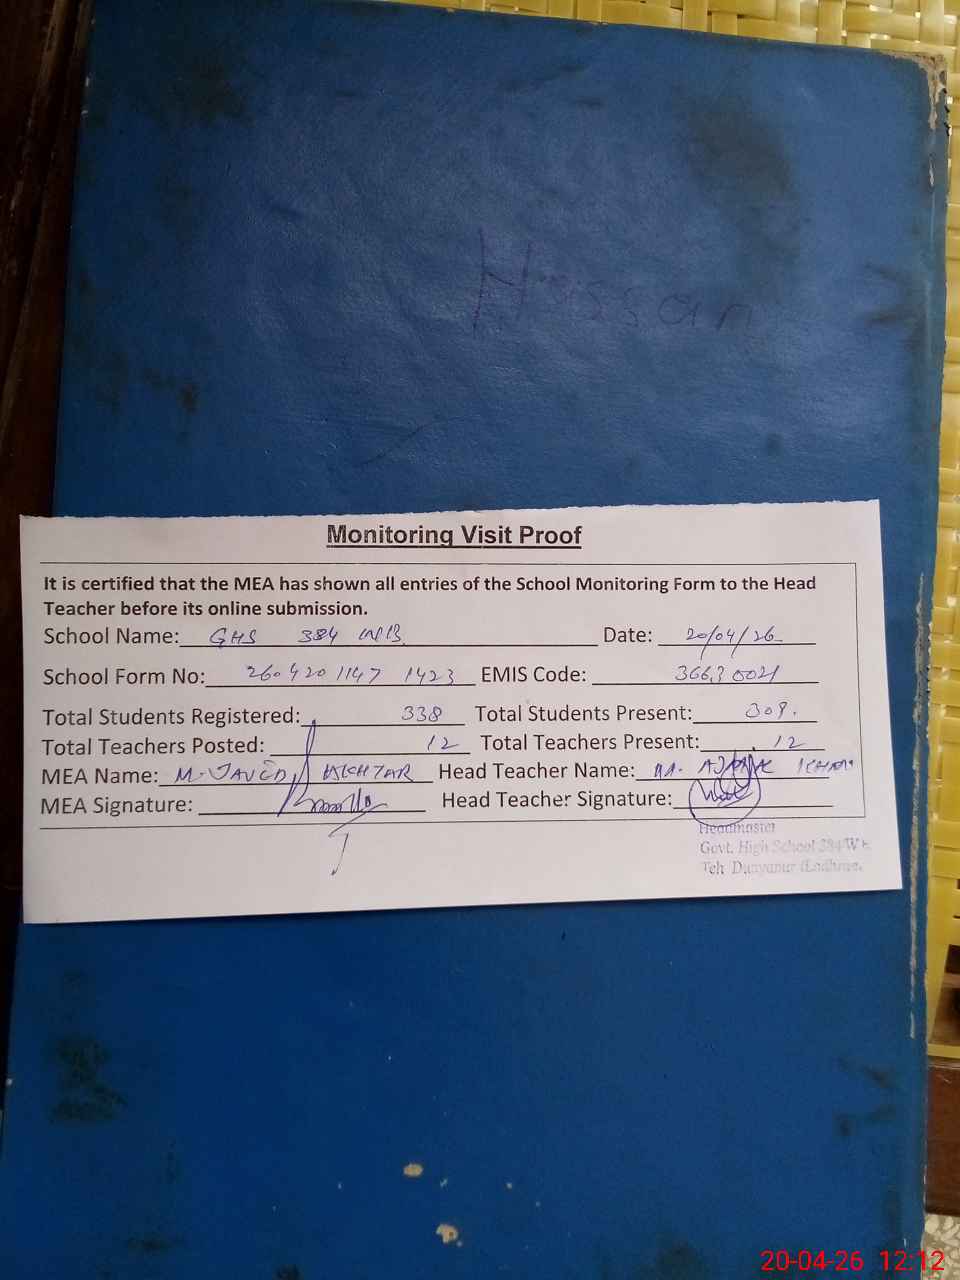 Hassan
Monitoring Visit Proof
It is certified that the MEA has shown all entries of the School Monitoring Form to the Head
Teacher before its online submission.
School Name: GHS 384 WB Date: 20/04/26
School Form No: 260420 1147 1423 EMIS Code: 36630021
Total Students Registered: 338 Total Students Present: 309.
Total Teachers Posted: 12 Total Teachers Present: 12
MEA Name: M. JAVED AKHTAR Head Teacher Name: KHAN
MEA Signature: Head Teacher Signature:
Headmaster
Govt. High School 384/W
Teh Dunyapur (Lodhran
20-04-26 12:12